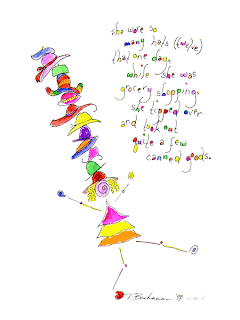 she wore so
many hats (twelve)
that one day,
while she was
grocery shopping,
she tipped over
and took out
quite a few
canned goods.
T. Buchanan '97